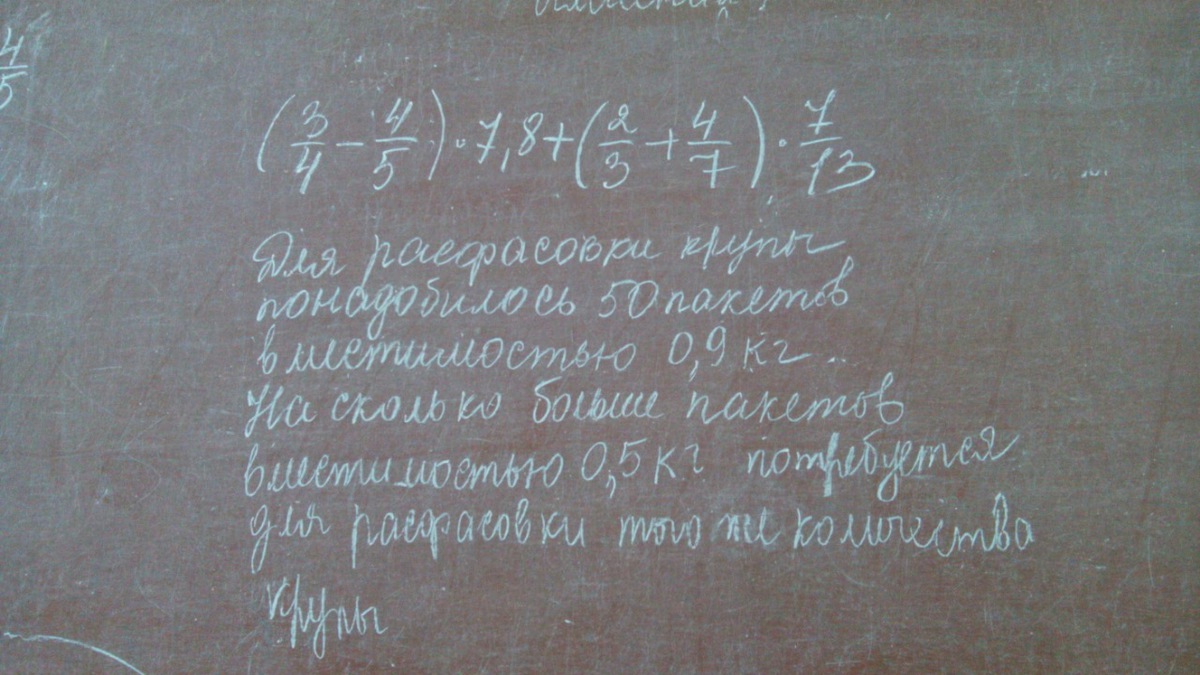 4/5
(3/4 - 4/5) · 7,8 + (2/3 + 4/7) · 7/13
Для расфасовки крупы
понадобилось 50 пакетов
вместимостью 0,9 кг ..
На сколько больше пакетов
вместимостью 0,5 кг потребуется
для расфасовки того же количества
крупы